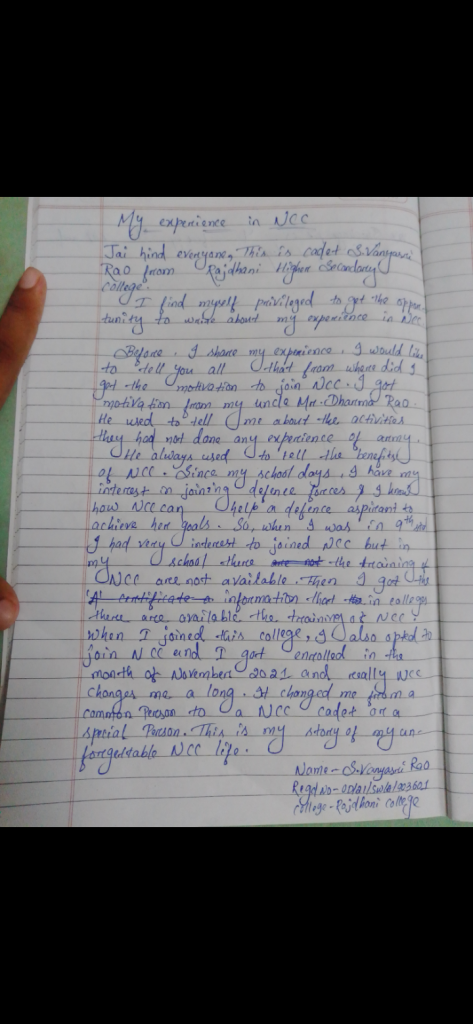 My experience in NCC
Jai hind everyone, This is cadet S.Vanyasri
Rao from Rajdhani Higher Secondary
college.
I find myself privileged to get the oppor-
tunity to write about my experience in NCC
Before, I share my experience, I would like
to tell you all that from where did I
got the motivation to join NCC. I got
motivation from my uncle Mr. Dharma Rao.
He used to tell me about the activities
they had not done any experience of army.
He always used to tell the benefits
of NCC. Since my school days, I have my
interest in joining defence forces & I know
how NCC can help a defence aspirant to
achieve her goals. So, when I was in 9th std
I had very interest to joined NCC but in
my school there are not the training of
NCC are not available. Then I got the
'A' certificate a information that in college
there are available the training of NCC.
When I joined this college, I also opted to
join NCC and I got enrolled in the
month of November 2021 and really NCC
changes me a long. It changed me from a
common Person to a NCC cadet or a
special Person. This is my story of my un-
forgettable NCC life.
Name - S.Vanyasri Rao
Regd No -
College - Rajdhani college